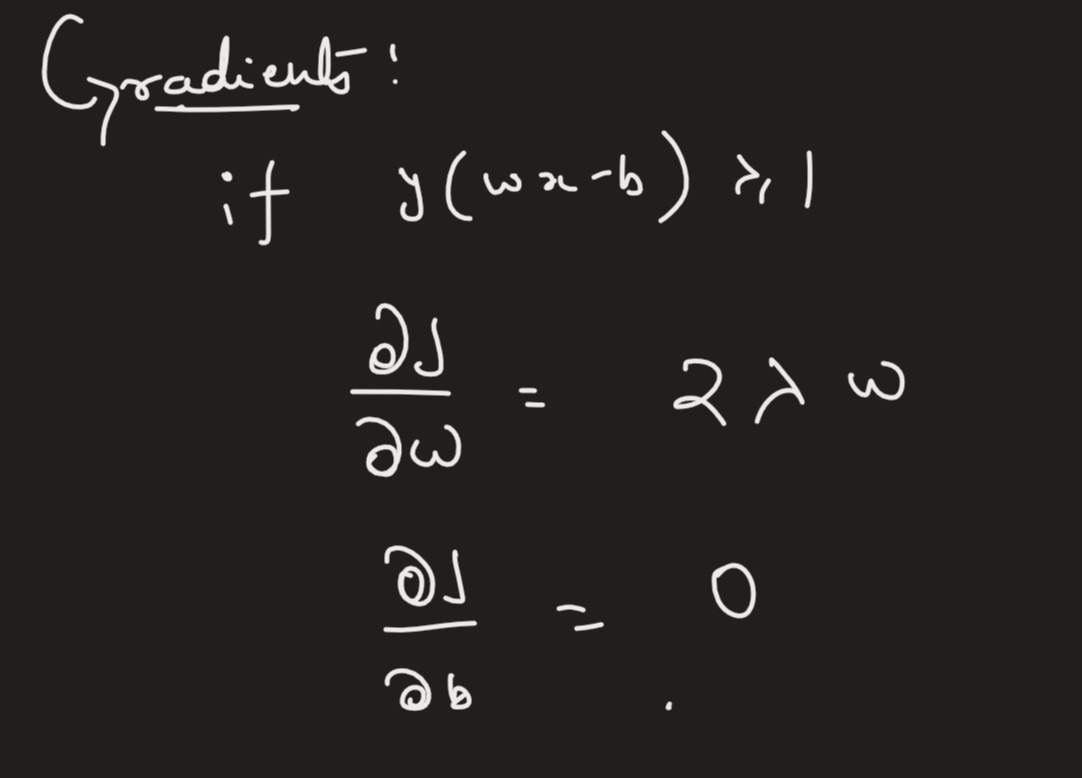 Gradients:
if y(wx-b) ⩾ 1
∂J/∂w = 2λw
∂J/∂b = 0